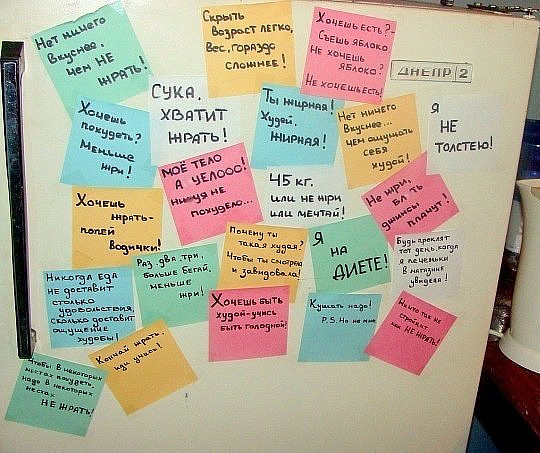 Нет ничего
вкуснее,
чем НЕ
ЖРАТЬ!
Скрыть
возраст легко,
Вес, гораздо
сложнее!
Хочешь есть?-
Съешь яблоко
Не хочешь
яблоко?
Не хочешь есть!
ДНЕПР 2
Хочешь
похудеть?
Меньше
жри!
СУКА,
ХВАТИТ
ЖРАТЬ!
Ты жирная!
Худей,
ЖИРНАЯ!
Нет ничего
вкуснее...
чем ощущать
себя
худой!
Я
НЕ
ТОЛСТЕЮ!
Хочешь
жрать-
попей
водички!
МОЁ ТЕЛО
А УЕЛООО!
ни уя не
похудело...
45 кг.
или не жри
или мечтай!
Не жри,
бл ть
джинсы
плачут!
Никогда еда
не доставит
столько
удовольствия,
сколько доставит
ощущение
худобы!
Раз, два, три,
больше бегай,
меньше
жри!
Почему ты
такая худая?
Чтобы ты смотрела
и завидовала!
Я
НА
ДИЕТЕ!
Будь проклят
тот день, когда
я печеньки
в магазине
увидела!
Хочешь быть
худой-учись
быть голодной!
Кушать надо!
P.S. Но не мне.
Никто так не
стройнит,
как НЕ ЖРАТЬ!
Чтобы в некоторых
местах похудеть,
надо в некоторых
местах
НЕ ЖРАТЬ!
Кончай жрать,
иди учись!